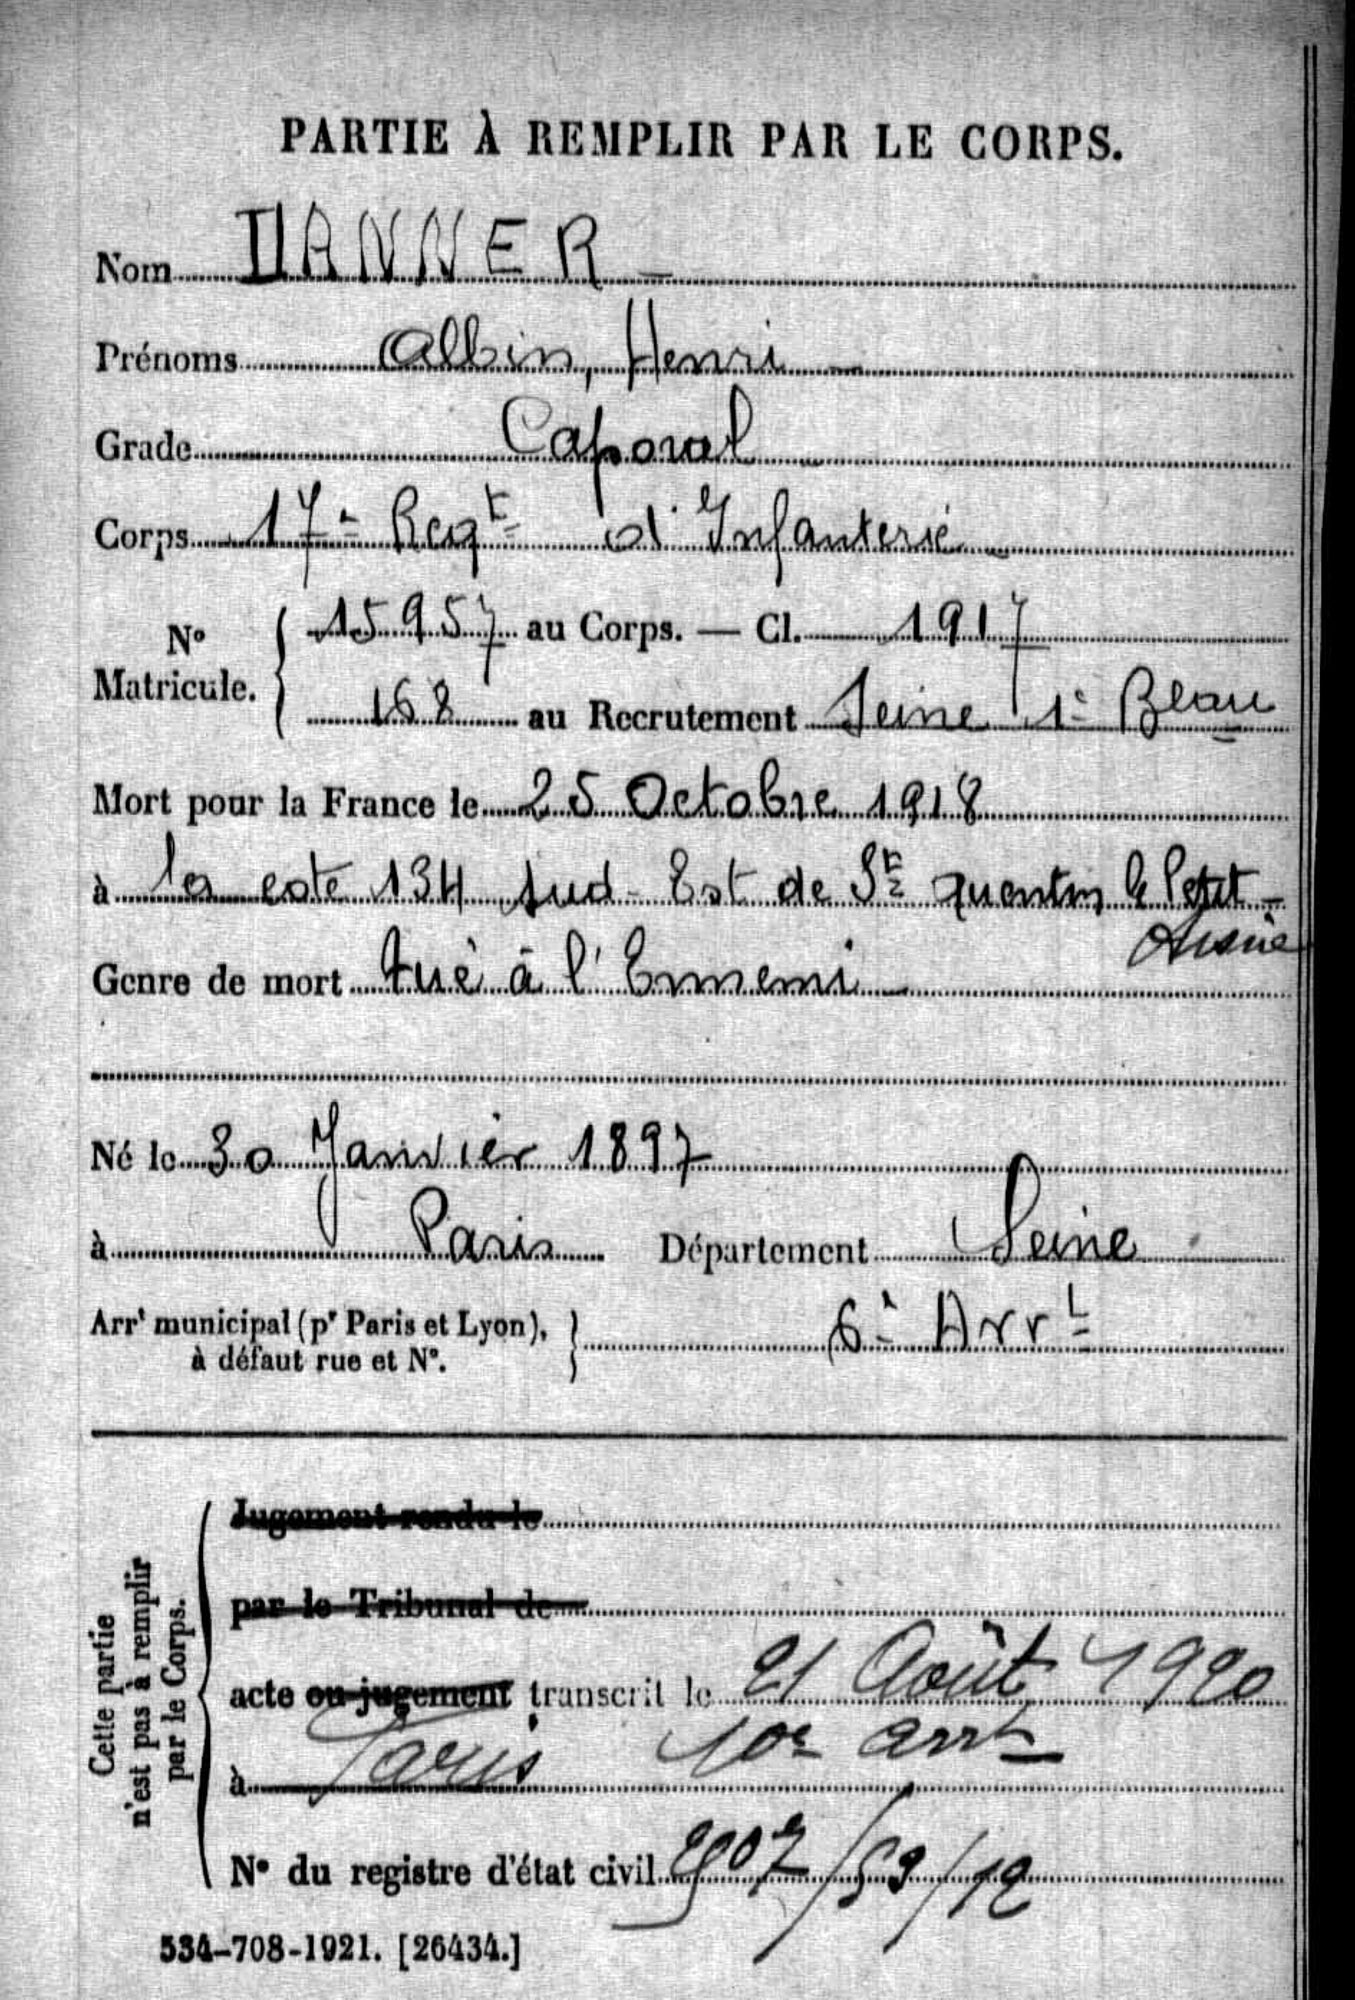 PARTIE À REMPLIR PAR LE CORPS.
Nom DANNER
Prénoms Albin, Henri
Grade Caporal
Corps 17e Regt d'Infanterie
No Matricule. 15957 au Corps. — Cl. 1917
168 au Recrutement Seine 1r Beau
Mort pour la France le 25 Octobre 1918
à la cote 134 Sud-Est de St Quentin le Petit -
Aisne
Genre de mort tué à l'Ennemi
Né le 30 Janvier 1897
à Paris Département Seine
Arrt municipal (pr Paris et Lyon), à défaut rue et No. 6e Arrt
Cette partie n'est pas à remplir par le Corps.
Jugement rendu le
par le Tribunal de
acte ou jugement transcrit le 21 Août 1920
à Paris 10e arrt
No du registre d'état civil /59/12
534-708-1921. [26434.]